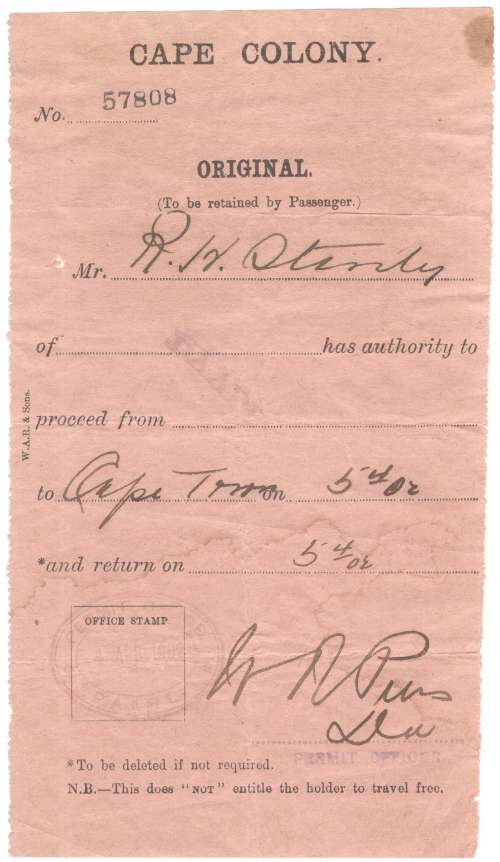 CAPE COLONY.
No. 57808
ORIGINAL.
(To be retained by Passenger.)
Mr. R. H. Stanley
of has authority to
PAARL
proceed from
W.A.R. & Sons.
to Cape Town on 5 4/02
*and return on 5 4/02
OFFICE STAMP
APR 1902
PAARL
PERMIT OFFICER
*To be deleted if not required.
N.B.—This does "NOT" entitle the holder to travel free.